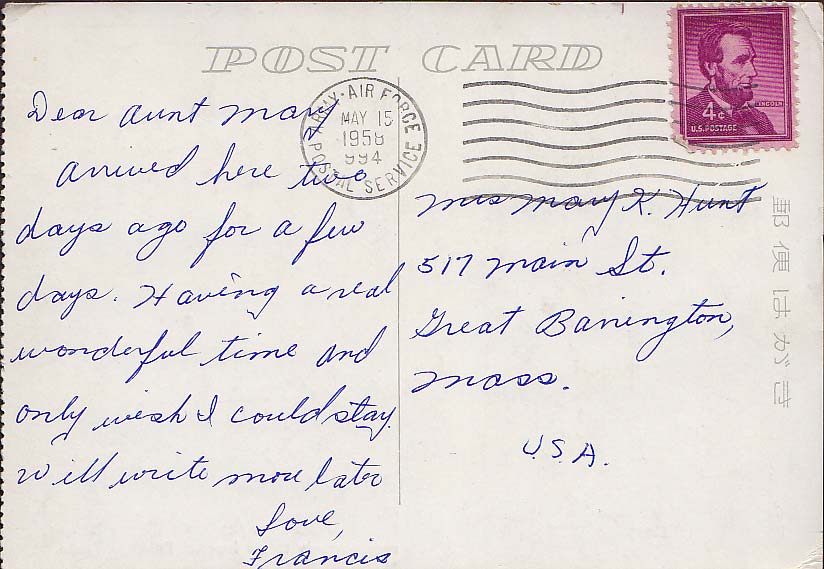 POST CARD
Dear Aunt Mary
Arrived here two
days ago for a few
days. Having a real
wonderful time and
only wish I could stay.
Will write more later
Love,
Francis
ARMY-AIR FORCE
MAY 15
1958
994
POSTAL SERVICE
4¢
LINCOLN
U.S. POSTAGE
Mrs Mary K. Hunt
517 Main St.
Great Barrington,
Mass.
U.S.A.
郵便はがき